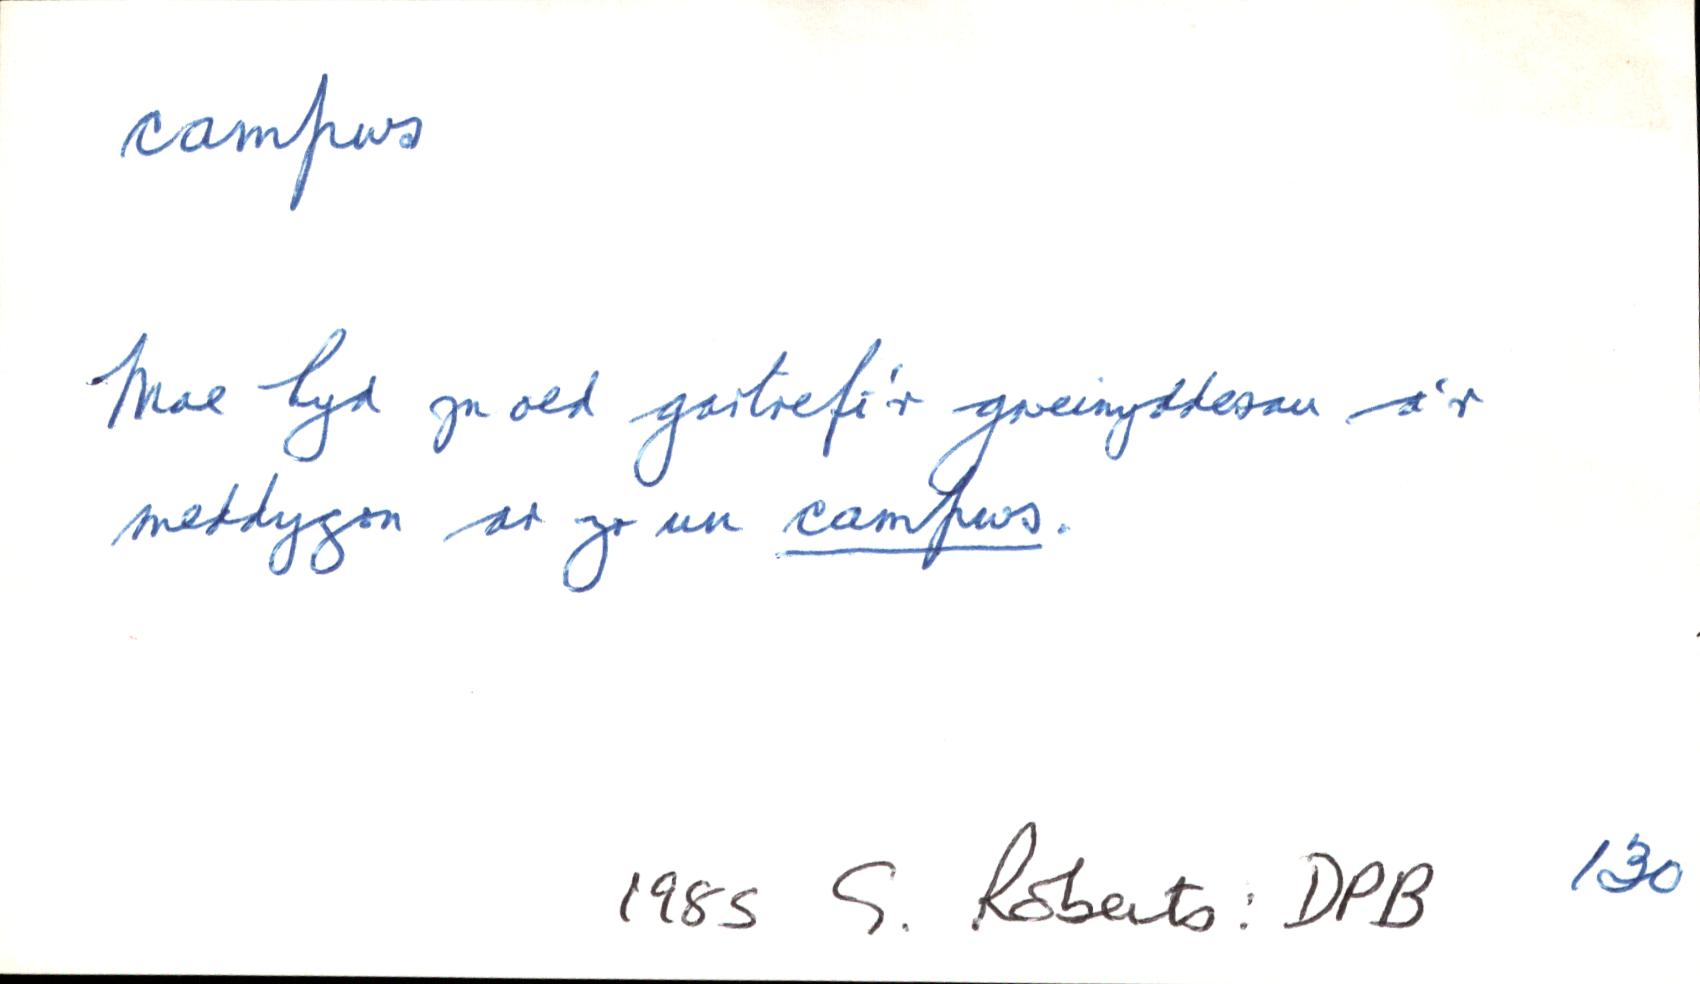 campws
Mae hyd yn oed gartrefi'r gweinyddesau a'r
meddygon ar yr un campws.
1985 S. Roberts: DPB 130